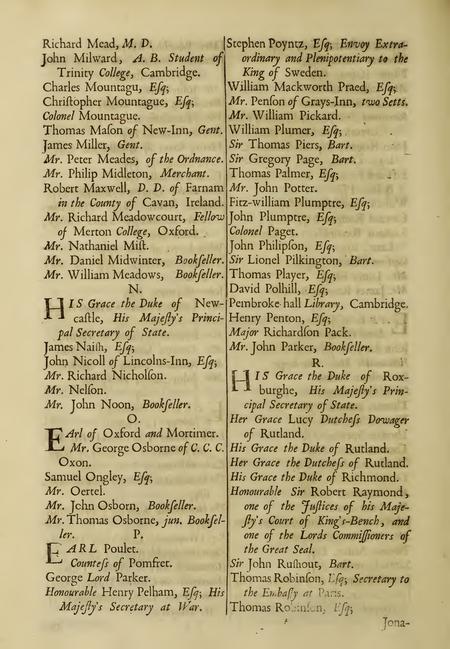 Richard Mead, M. D.
John Milward, A. B. Student of
Trinity College, Cambridge.
Charles Mountagu, Eſq;
Chriſtopher Mountague, Eſq;
Colonel Mountague.
Thomas Maſon of New-Inn, Gent.
James Miller, Gent.
Mr. Peter Meades, of the Ordnance.
Mr. Philip Midleton, Merchant.
Robert Maxwell, D. D. of Farnam
in the County of Cavan, Ireland.
Mr. Richard Meadowcourt, Fellow
of Merton College, Oxford.
Mr. Nathaniel Miſt.
Mr. Daniel Midwinter, Bookſeller.
Mr. William Meadows, Bookſeller.
N.
HIS Grace the Duke of New-
caſtle, His Majeſty's Princi-
pal Secretary of State.
James Naiſh, Eſq;
John Nicoll of Lincolns-Inn, Eſq;
Mr. Richard Nicholſon.
Mr. Nelſon.
Mr. John Noon, Bookſeller.
O.
EArl of Oxford and Mortimer.
Mr. George Osborne of C. C. C.
Oxon.
Samuel Ongley, Eſq;
Mr. Oertel.
Mr. John Osborn, Bookſeller.
Mr. Thomas Osborne, jun. Bookſel-
ler.
P.
EARL Poulet.
Counteſs of Pomfret.
George Lord Parker.
Honourable Henry Pelham, Eſq; His
Majeſty's Secretary at War.
Stephen Poyntz, Eſq; Envoy Extra-
ordinary and Plenipotentiary to the
King of Sweden.
William Mackworth Praed, Eſq;
Mr. Penſon of Grays-Inn, two Setts.
Mr. William Pickard.
William Plumer, Eſq;
Sir Thomas Piers, Bart.
Sir Gregory Page, Bart.
Thomas Palmer, Eſq;
Mr. John Potter.
Fitz-william Plumptre, Eſq;
John Plumptre, Eſq;
Colonel Paget.
John Philipſon, Eſq;
Sir Lionel Pilkington, Bart.
Thomas Player, Eſq;
David Polhill, Eſq;
Pembroke hall Library, Cambridge.
Henry Penton, Eſq;
Major Richardſon Pack.
Mr. John Parker, Bookſeller.
R.
HIS Grace the Duke of Rox-
burghe, His Majeſty's Prin-
cipal Secretary of State.
Her Grace Lucy Dutcheſs Dowager
of Rutland.
His Grace the Duke of Rutland.
Her Grace the Dutcheſs of Rutland.
His Grace the Duke of Richmond.
Honourable Sir Robert Raymond,
one of the Juſtices of his Maje-
ſty's Court of King's-Bench, and
one of the Lords Commiſſioners of
the Great Seal.
Sir John Ruſhout, Bart.
Thomas Robinſon, Eſq; Secretary to
the Embaſſy at Paris.
Thomas Robinſon, Eſq;
Jona-